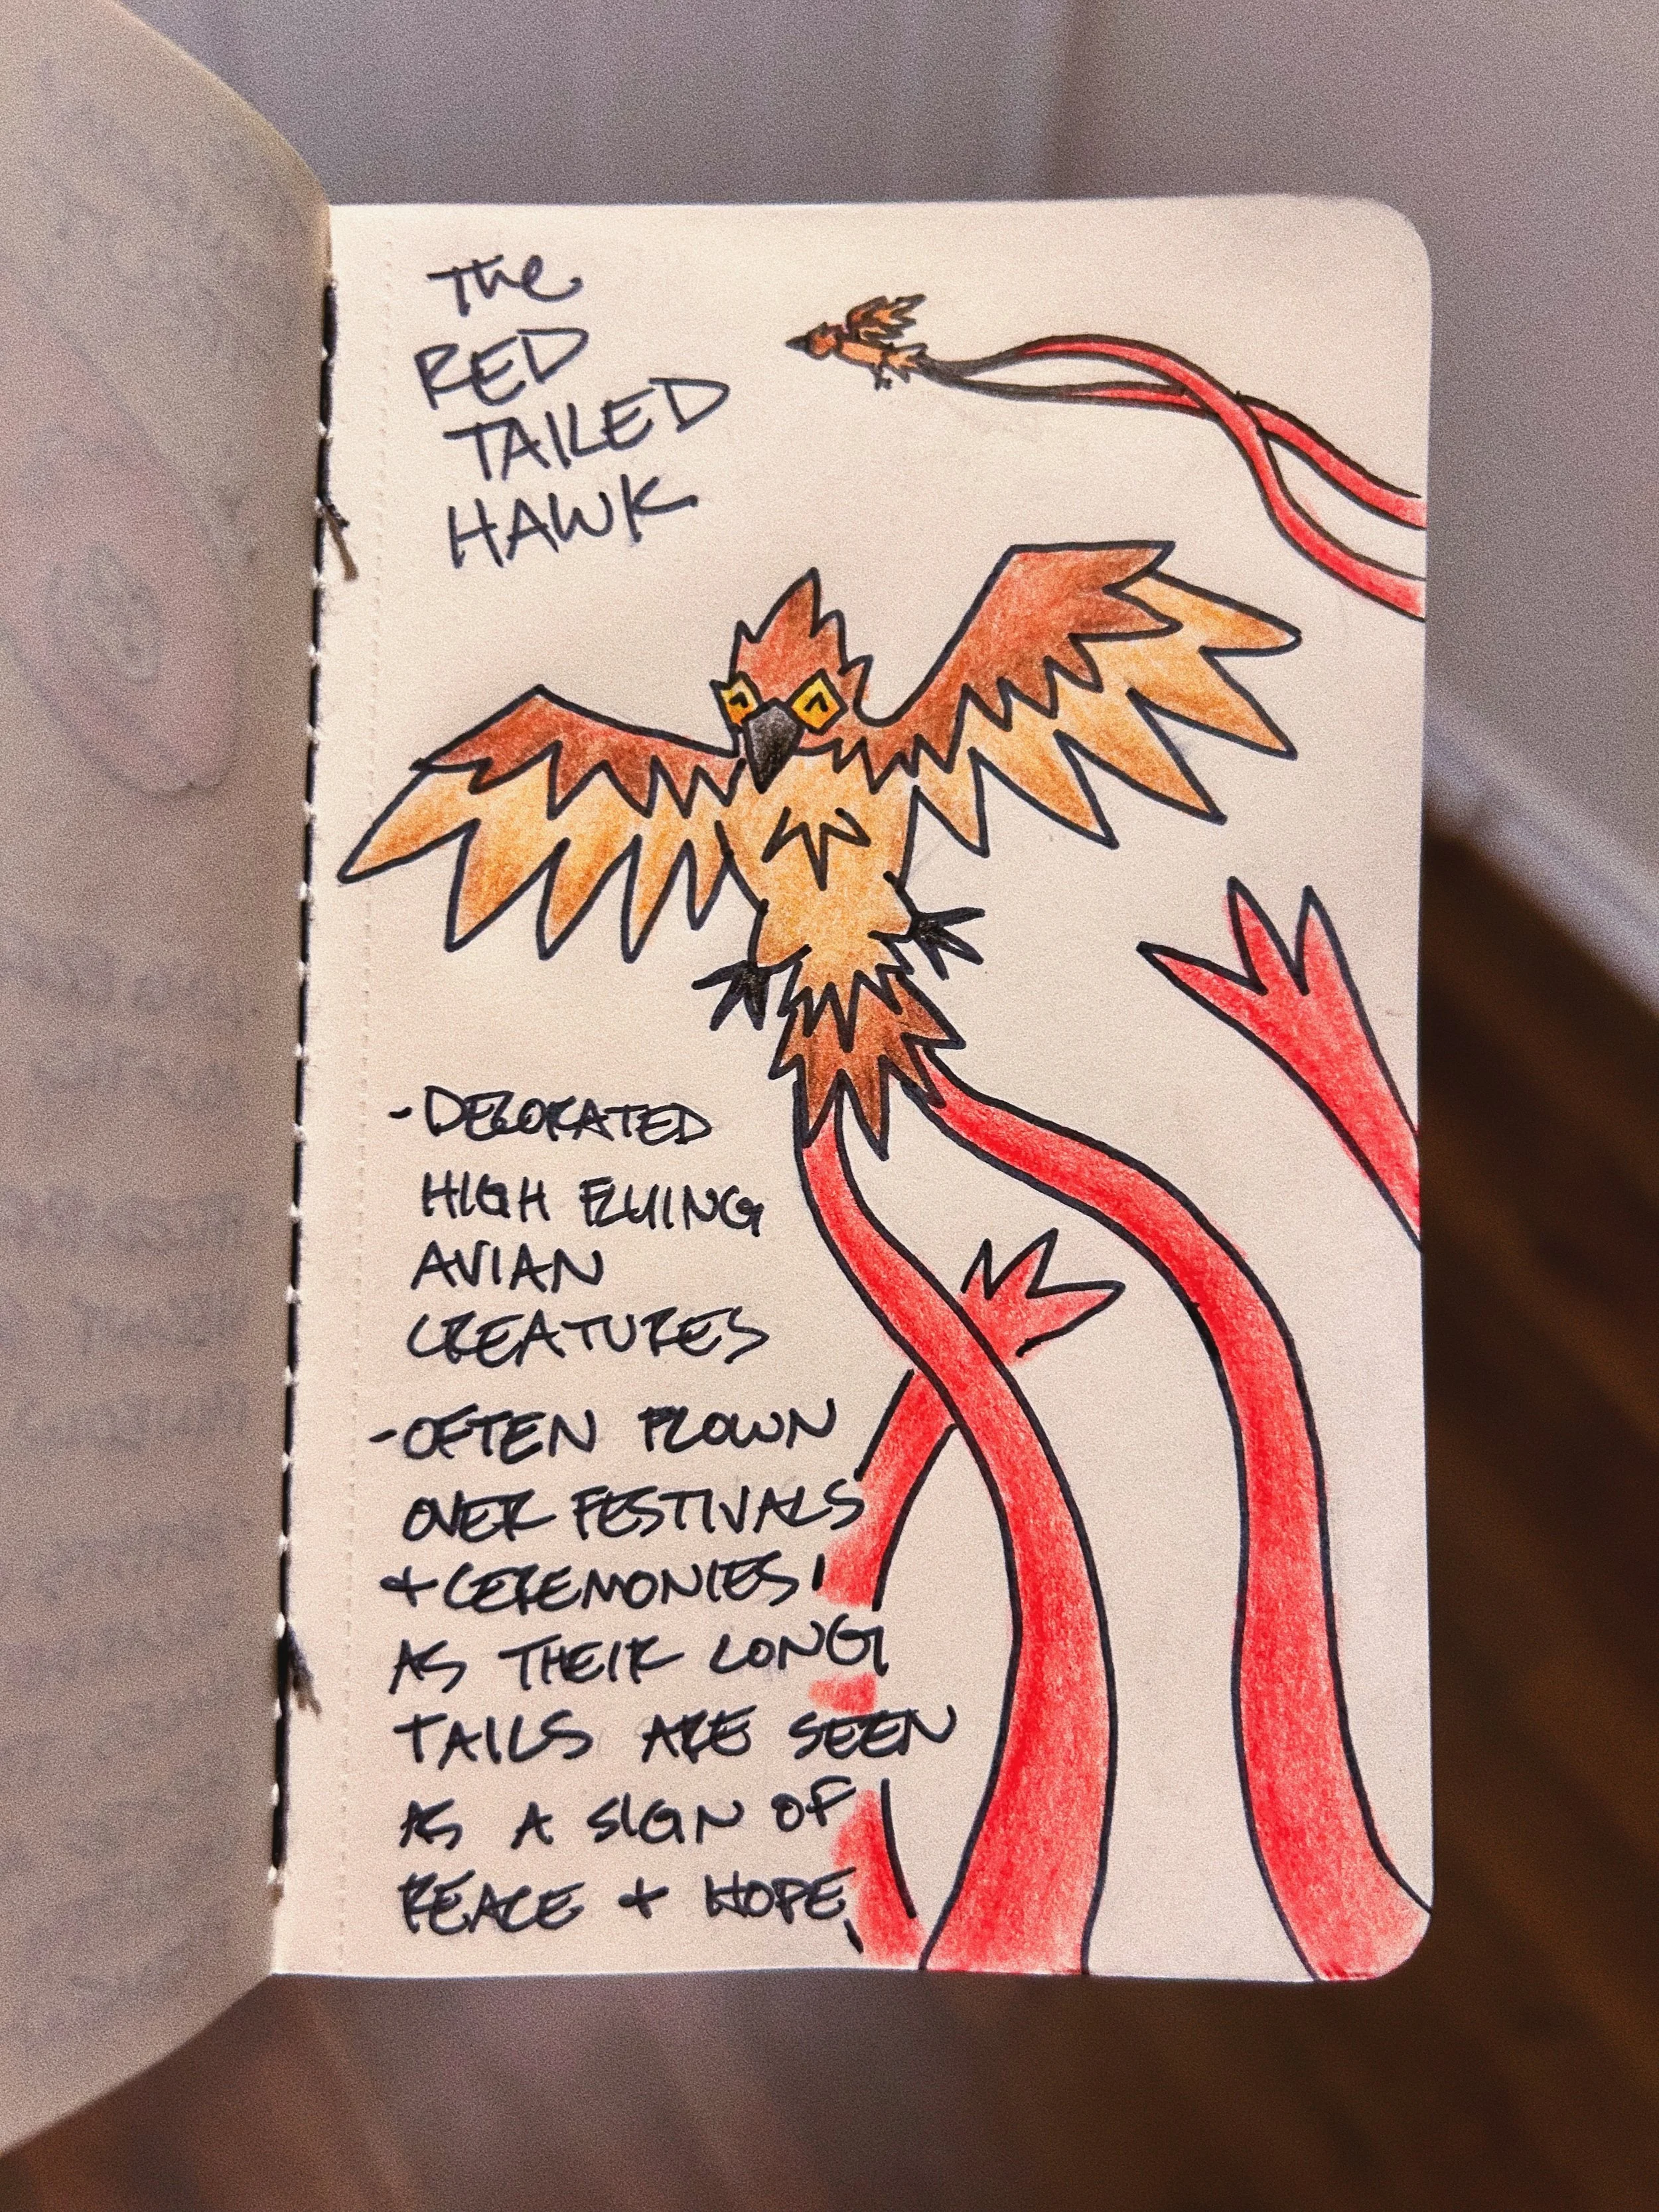 The
RED
TAILED
HAWK
- DECORATED
HIGH FLYING
AVIAN
CREATURES
- OFTEN FLOWN
OVER FESTIVALS
+ CEREMONIES
AS THEIR LONG
TAILS ARE SEEN
AS A SIGN OF
PEACE + HOPE